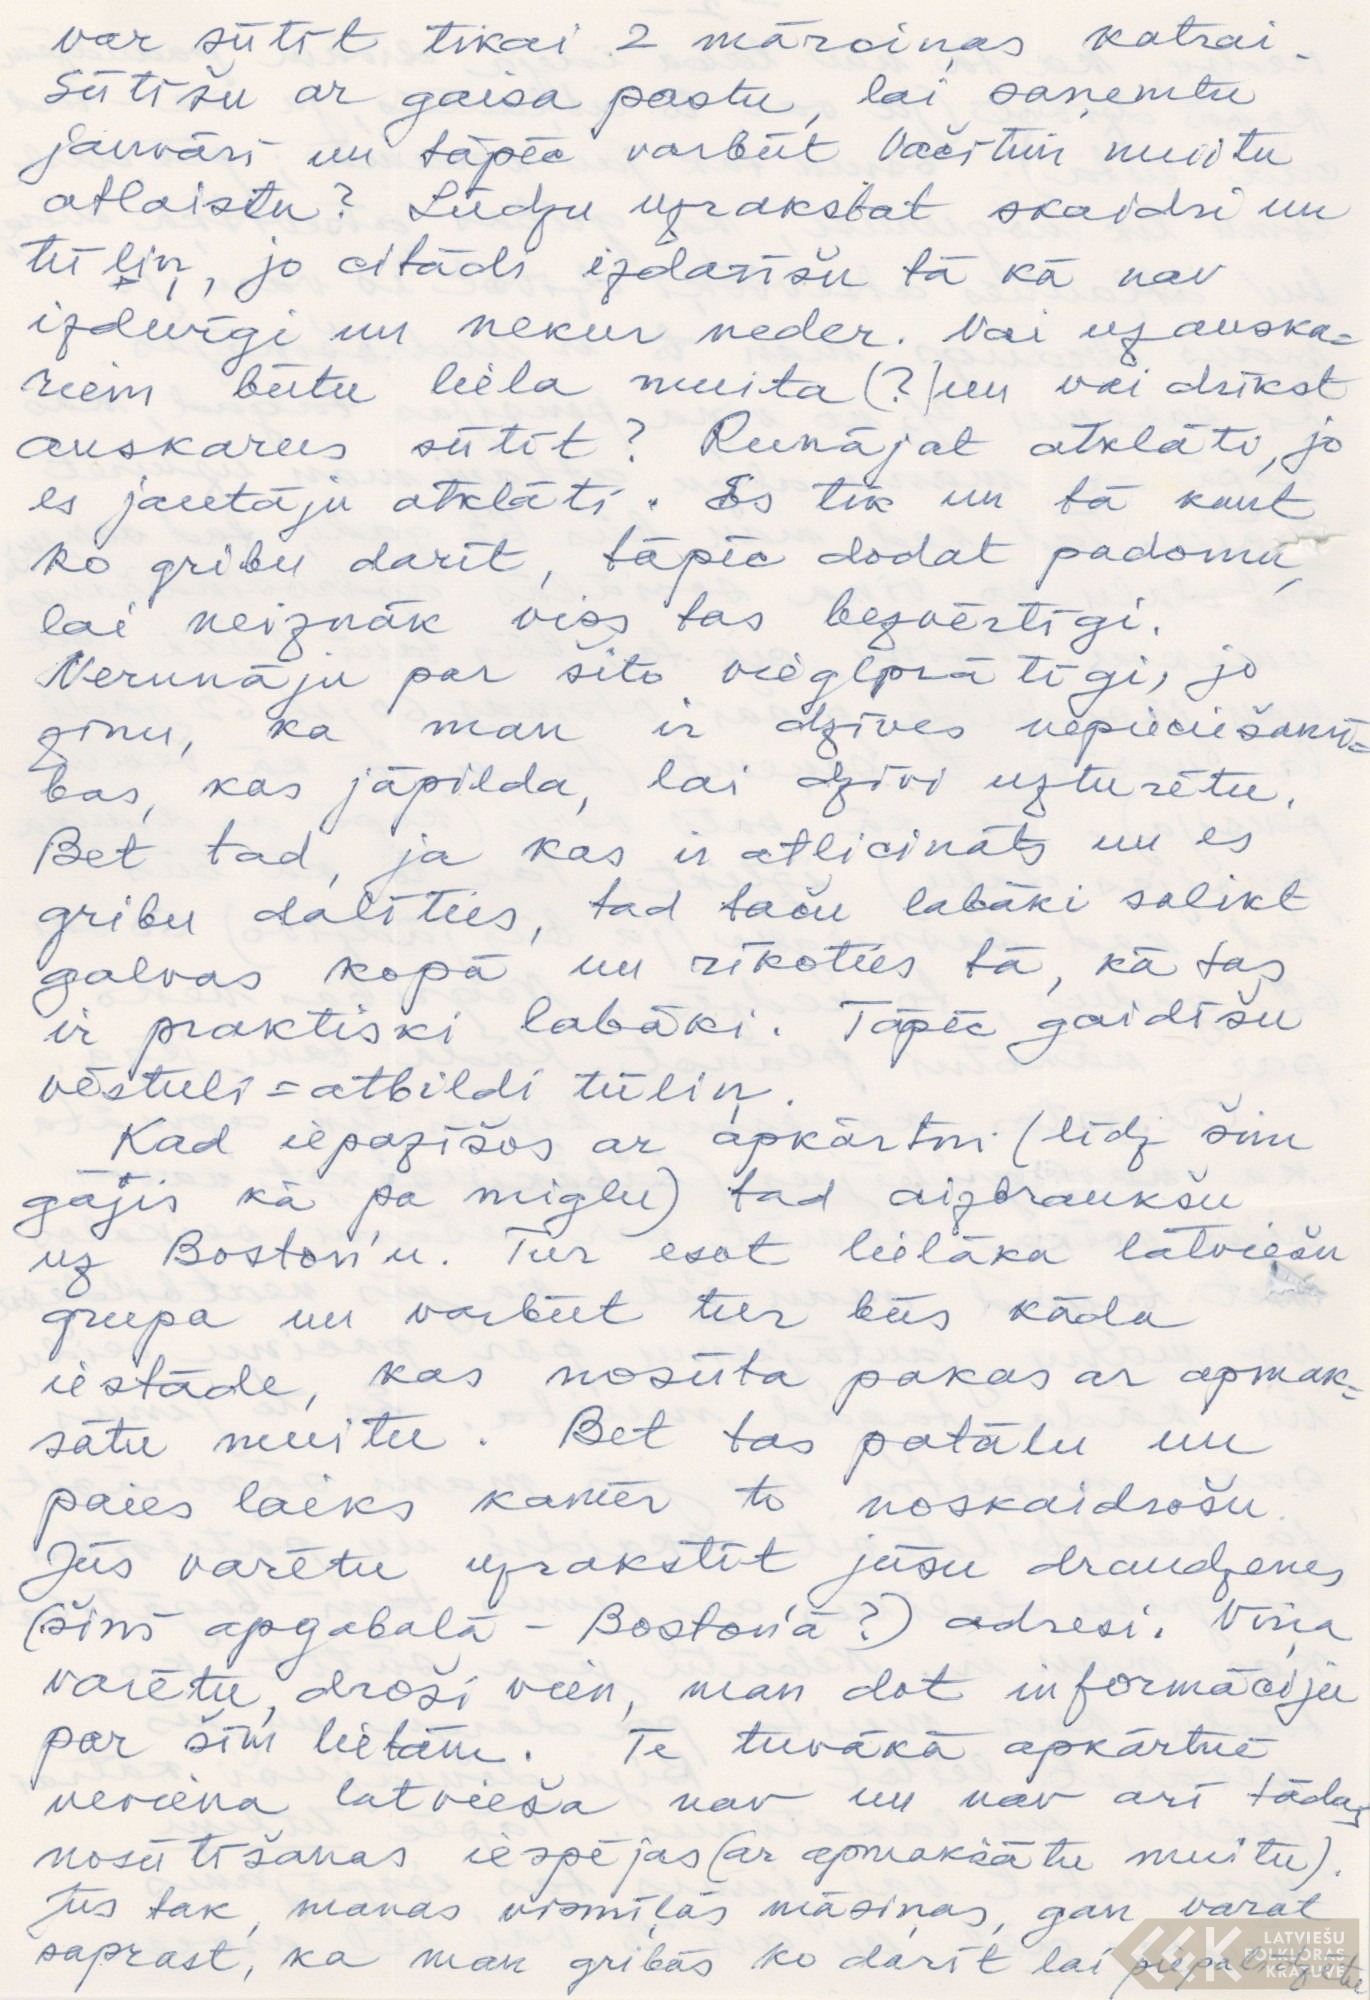 var sūtīt tikai 2 mārciņas katrai.
Sūtīšu ar gaisa pastu, lai saņemtu
janvārī un tāpēc varbūt Vačštun muitu
atlaistu? Lūdzu uzrakstat skaidri un
tūliņ, jo citādi izdarīšu tā kā nav
izdevīgi un nekur neder. Vai uz auska=
riem būtu liela muita (?) un vai drīkst
auskarus sūtīt? Runājat atklāti, jo
es jautāju atklāti. Es tik un tā kaut
ko gribu darīt, tāpēc dodat padomu,
lai neiznāk viss tas bezvērtīgi.
Nerunāju par šito vieglprātīgi, jo
zinu, ka man ir dzīves nepieciešamī=
bas, kas jāpilda, lai dzīvi uzturētu.
Bet tad, ja kas ir atlicināts un es
gribu dalīties, tad taču labāki salikt
galvas kopā un rīkoties tā, kā tas
ir praktiski labāki. Tāpēc gaidīšu
vēstuli=atbildi tūliņ.
Kad iepazīšos ar apkārtni (līdz šim
gājis kā pa miglu) tad aizbraukšu
uz Boston'u. Tur esot lielāka latviešu
grupa un varbūt tur būs kāda
iestāde, kas nosūta pakas ar apmak=
sātu muitu. Bet tas patālu un
paies laiks kamēr to noskaidrošu.
Jūs varētu uzrakstīt jūsu draudzenes
(šinī apgabalā - Boston'ā?) adresi. Viņa
varētu, droši vien, man dot informāciju
par šīm lietām. Te tuvākā apkārtnē
neviena latvieša nav un nav arī tādas
nosūtīšanas iespējas (ar apmaksātu muitu).
Jūs tak, manas vismīļās māsiņas, gan varat
saprast, ka man gribās ko darīt lai piepalīdzētu
LATVIEŠU
FOLKLORAS
KRĀTUVE